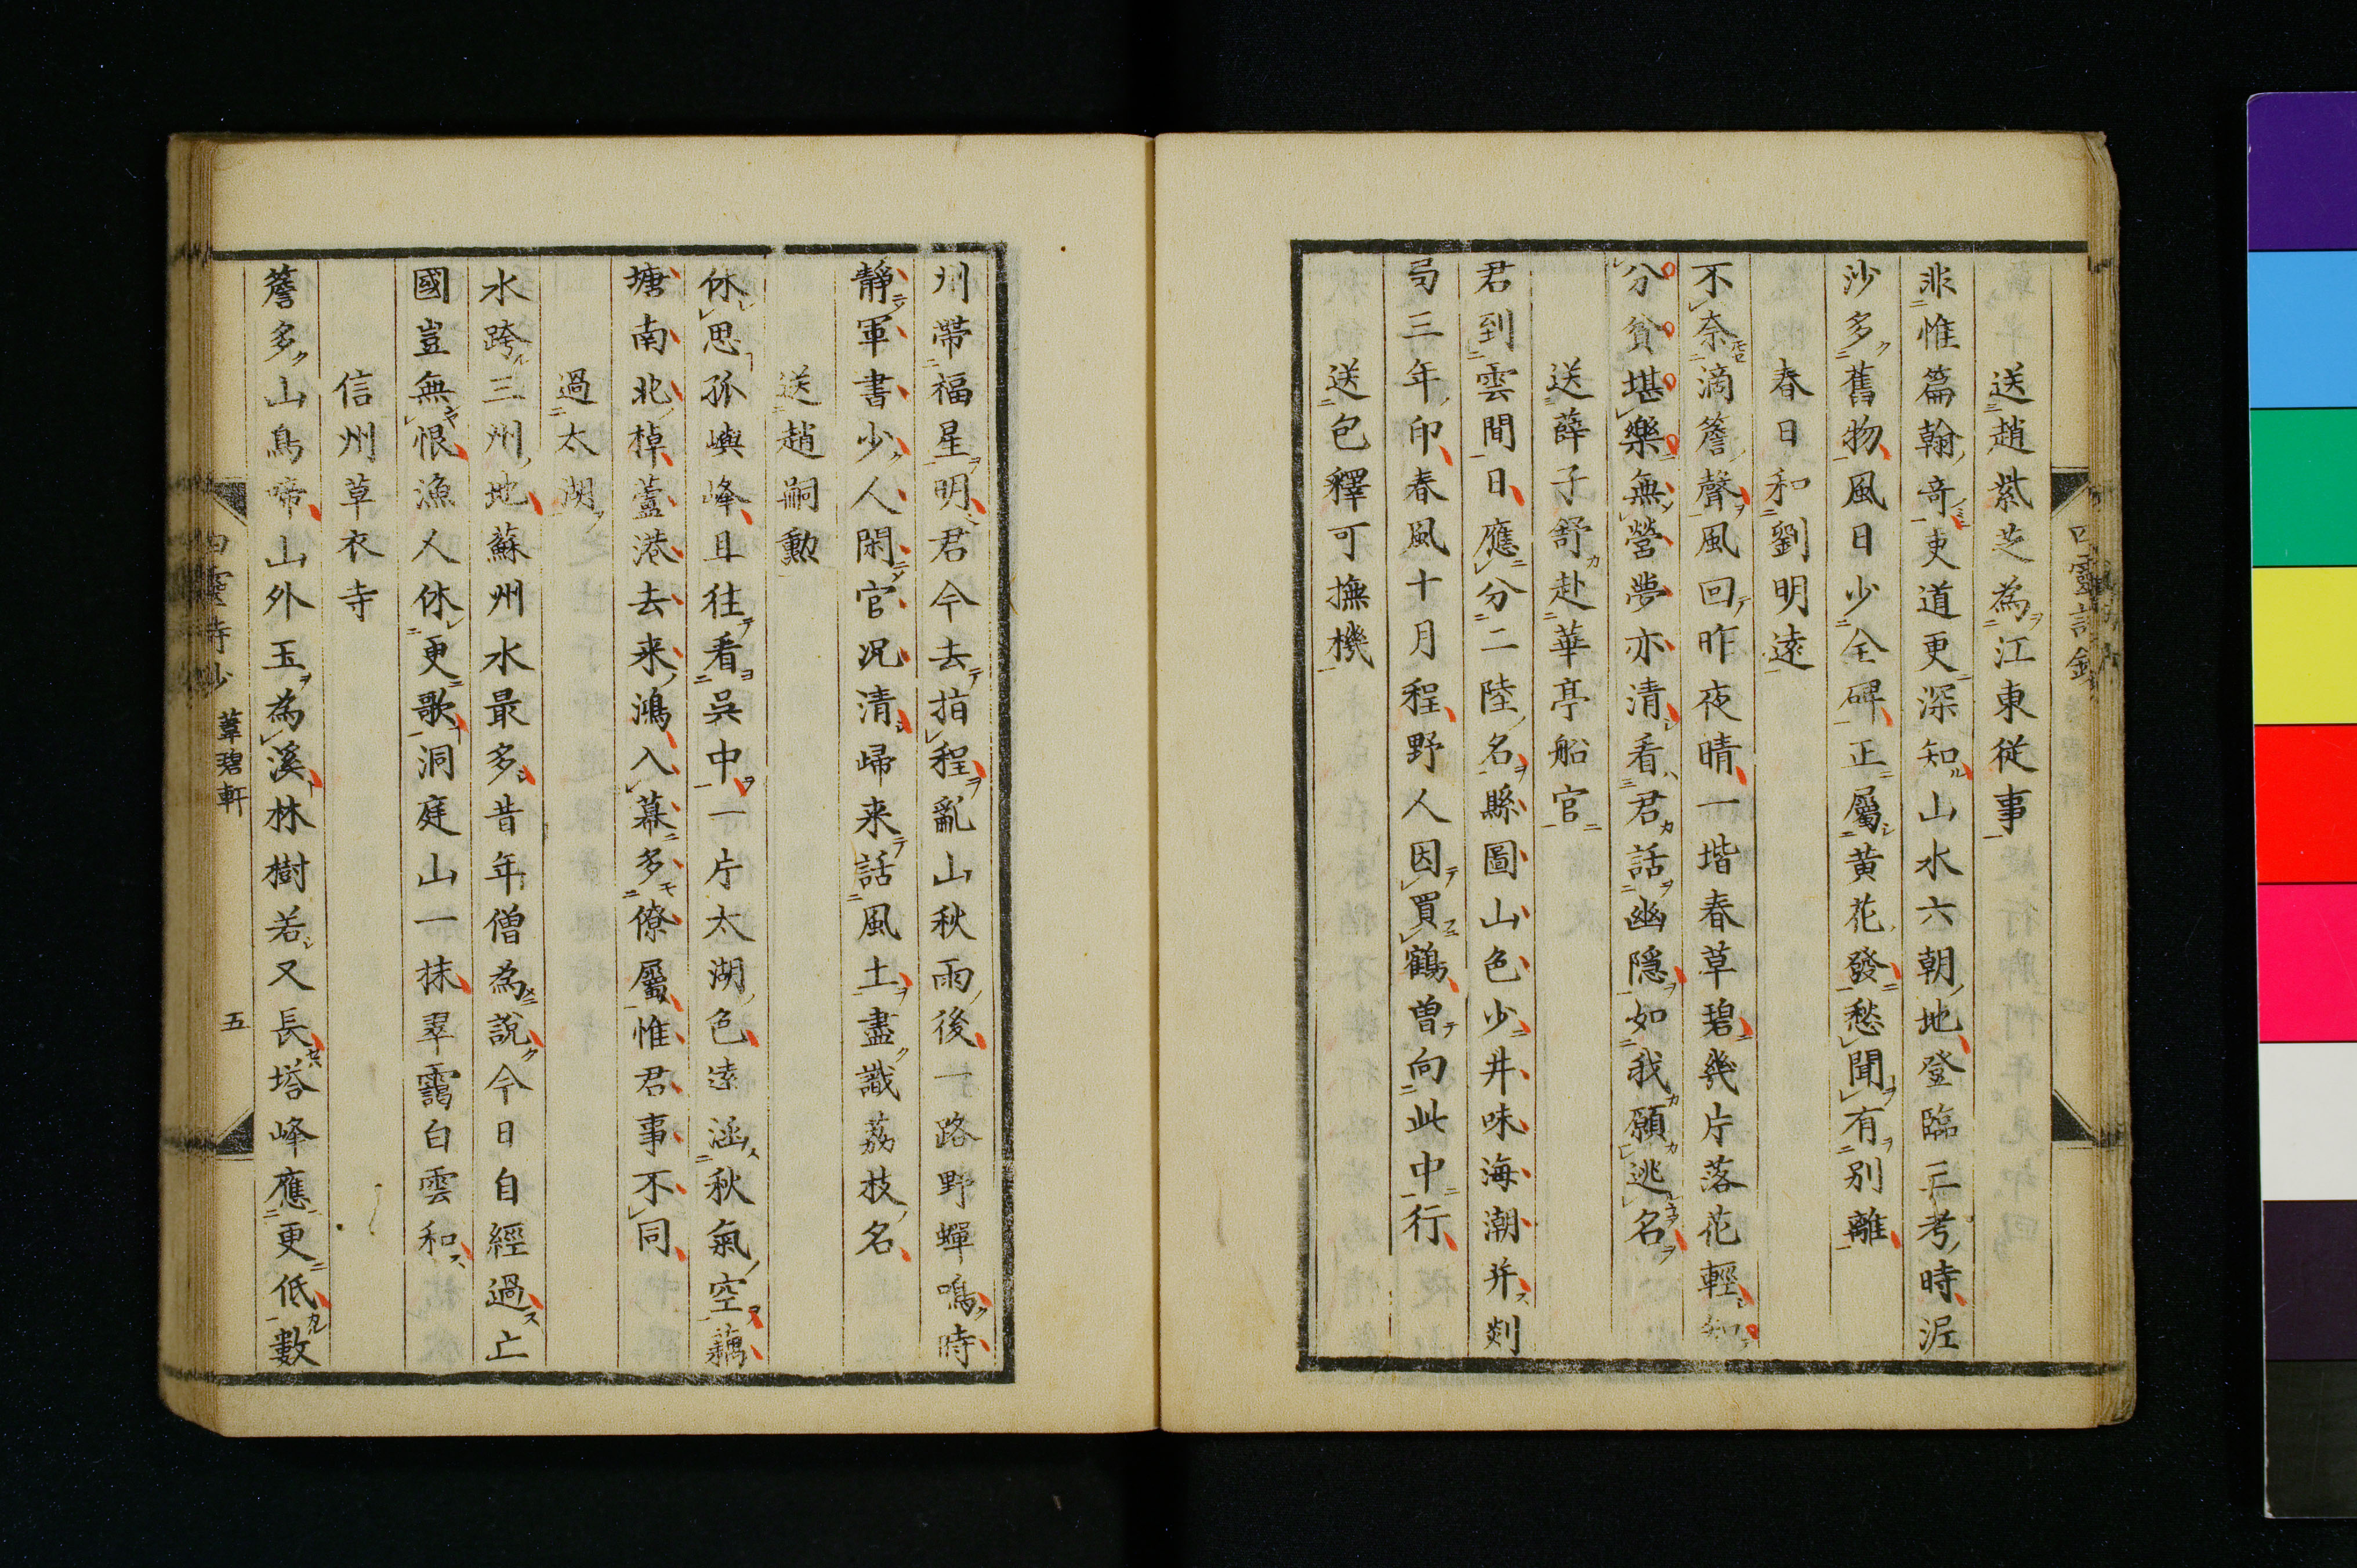 送趙紫芝為江東從事
非惟篇翰奇吏道更深知山水六朝地登臨三考時泥
沙多舊物風日少全碑正屬黄花發愁聞有别離
春日和劉明遠
不奈滴簷聲風回昨夜晴一堦春草碧幾片落花輕知
分貧堪樂無營夢亦清看君話幽隱如我願逃名
送薛子舒赴華亭船官
君到雲間日應分二陸名縣圖山色少井味海潮并剡
曷三年印春風十月程野人因買鶴曾向此中行
送包釋可撫機
州帶福星明君今去指程亂山秋雨後一路野蟬鳴時
靜軍書少人閑官況清歸来話風土盡識荔枝名
送趙嗣勲
休思孤嶼峰且往看吳中一片太湖色遠涵秋氣空藕
塘南北棹蘆港去来鴻入幕多僚屬惟君事不同
過太湖
水跨三州地蘇州水最多昔年僧為說今日自經過亡
國豈無恨漁人休更歌洞庭山一抹翠靄白雲和
信州草衣寺
簷多山鳥啼山外玉為溪林樹若又長塔峰應更低數
四靈詩鈔
四靈詩鈔 葦碧軒 五